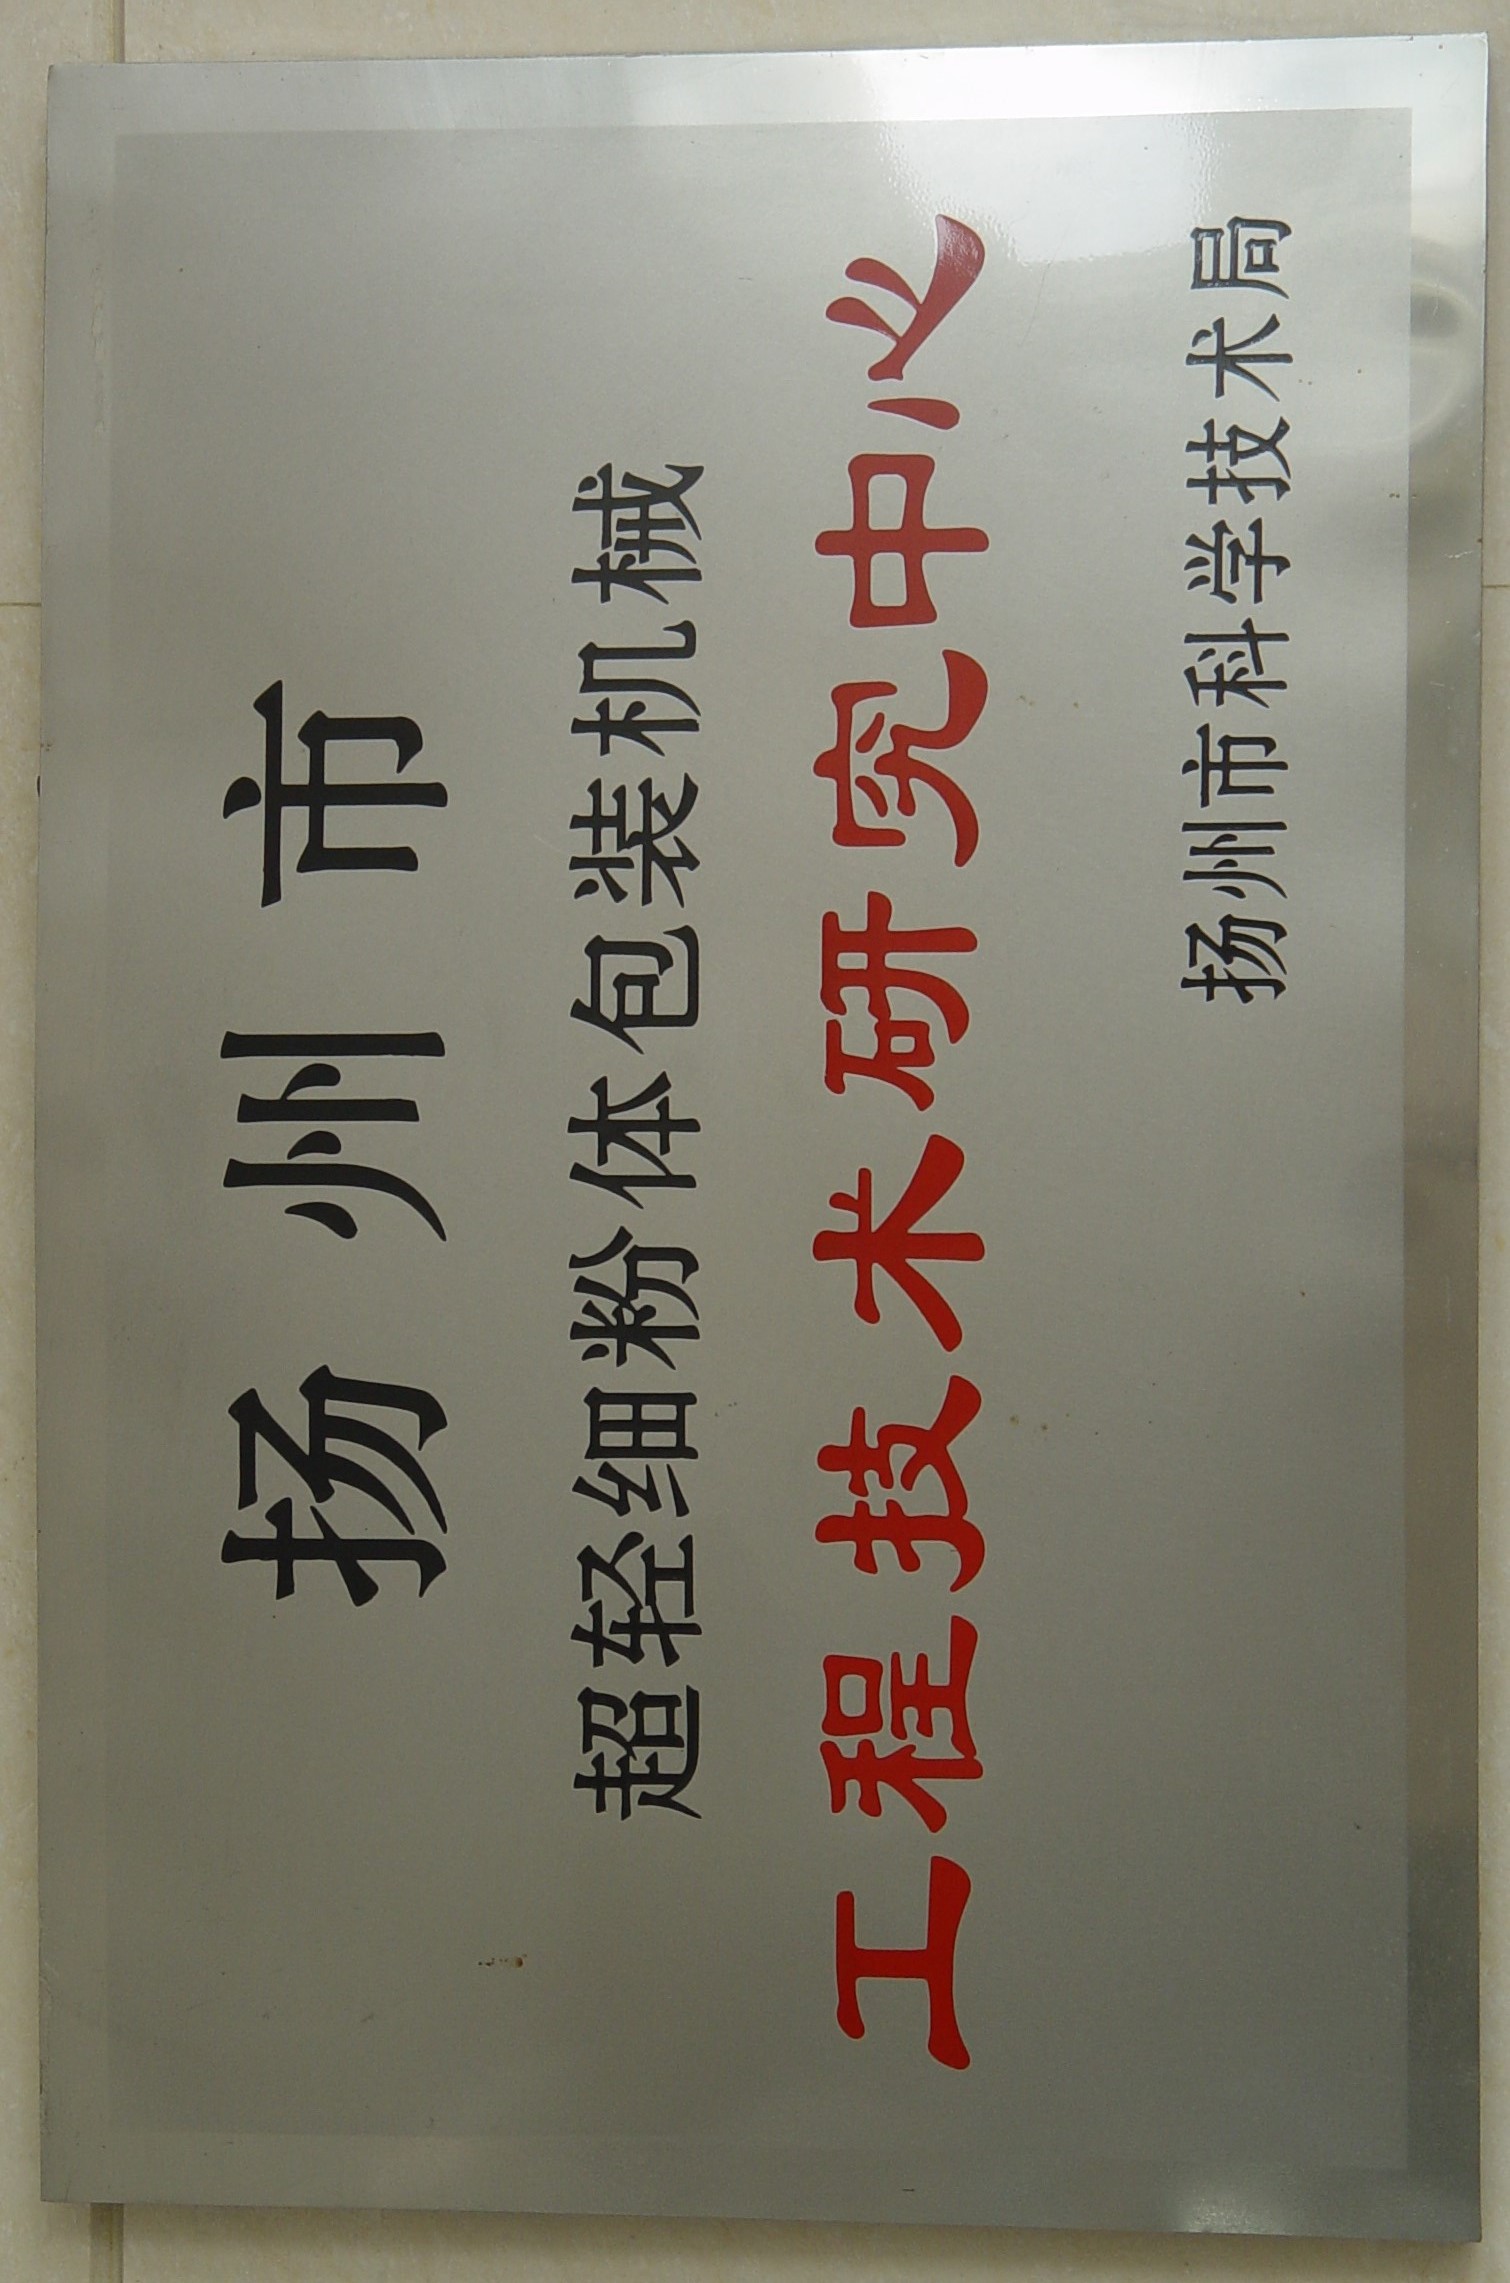 扬州市
超轻细粉体包装机械
工程技术研究中心
扬州市科学技术局